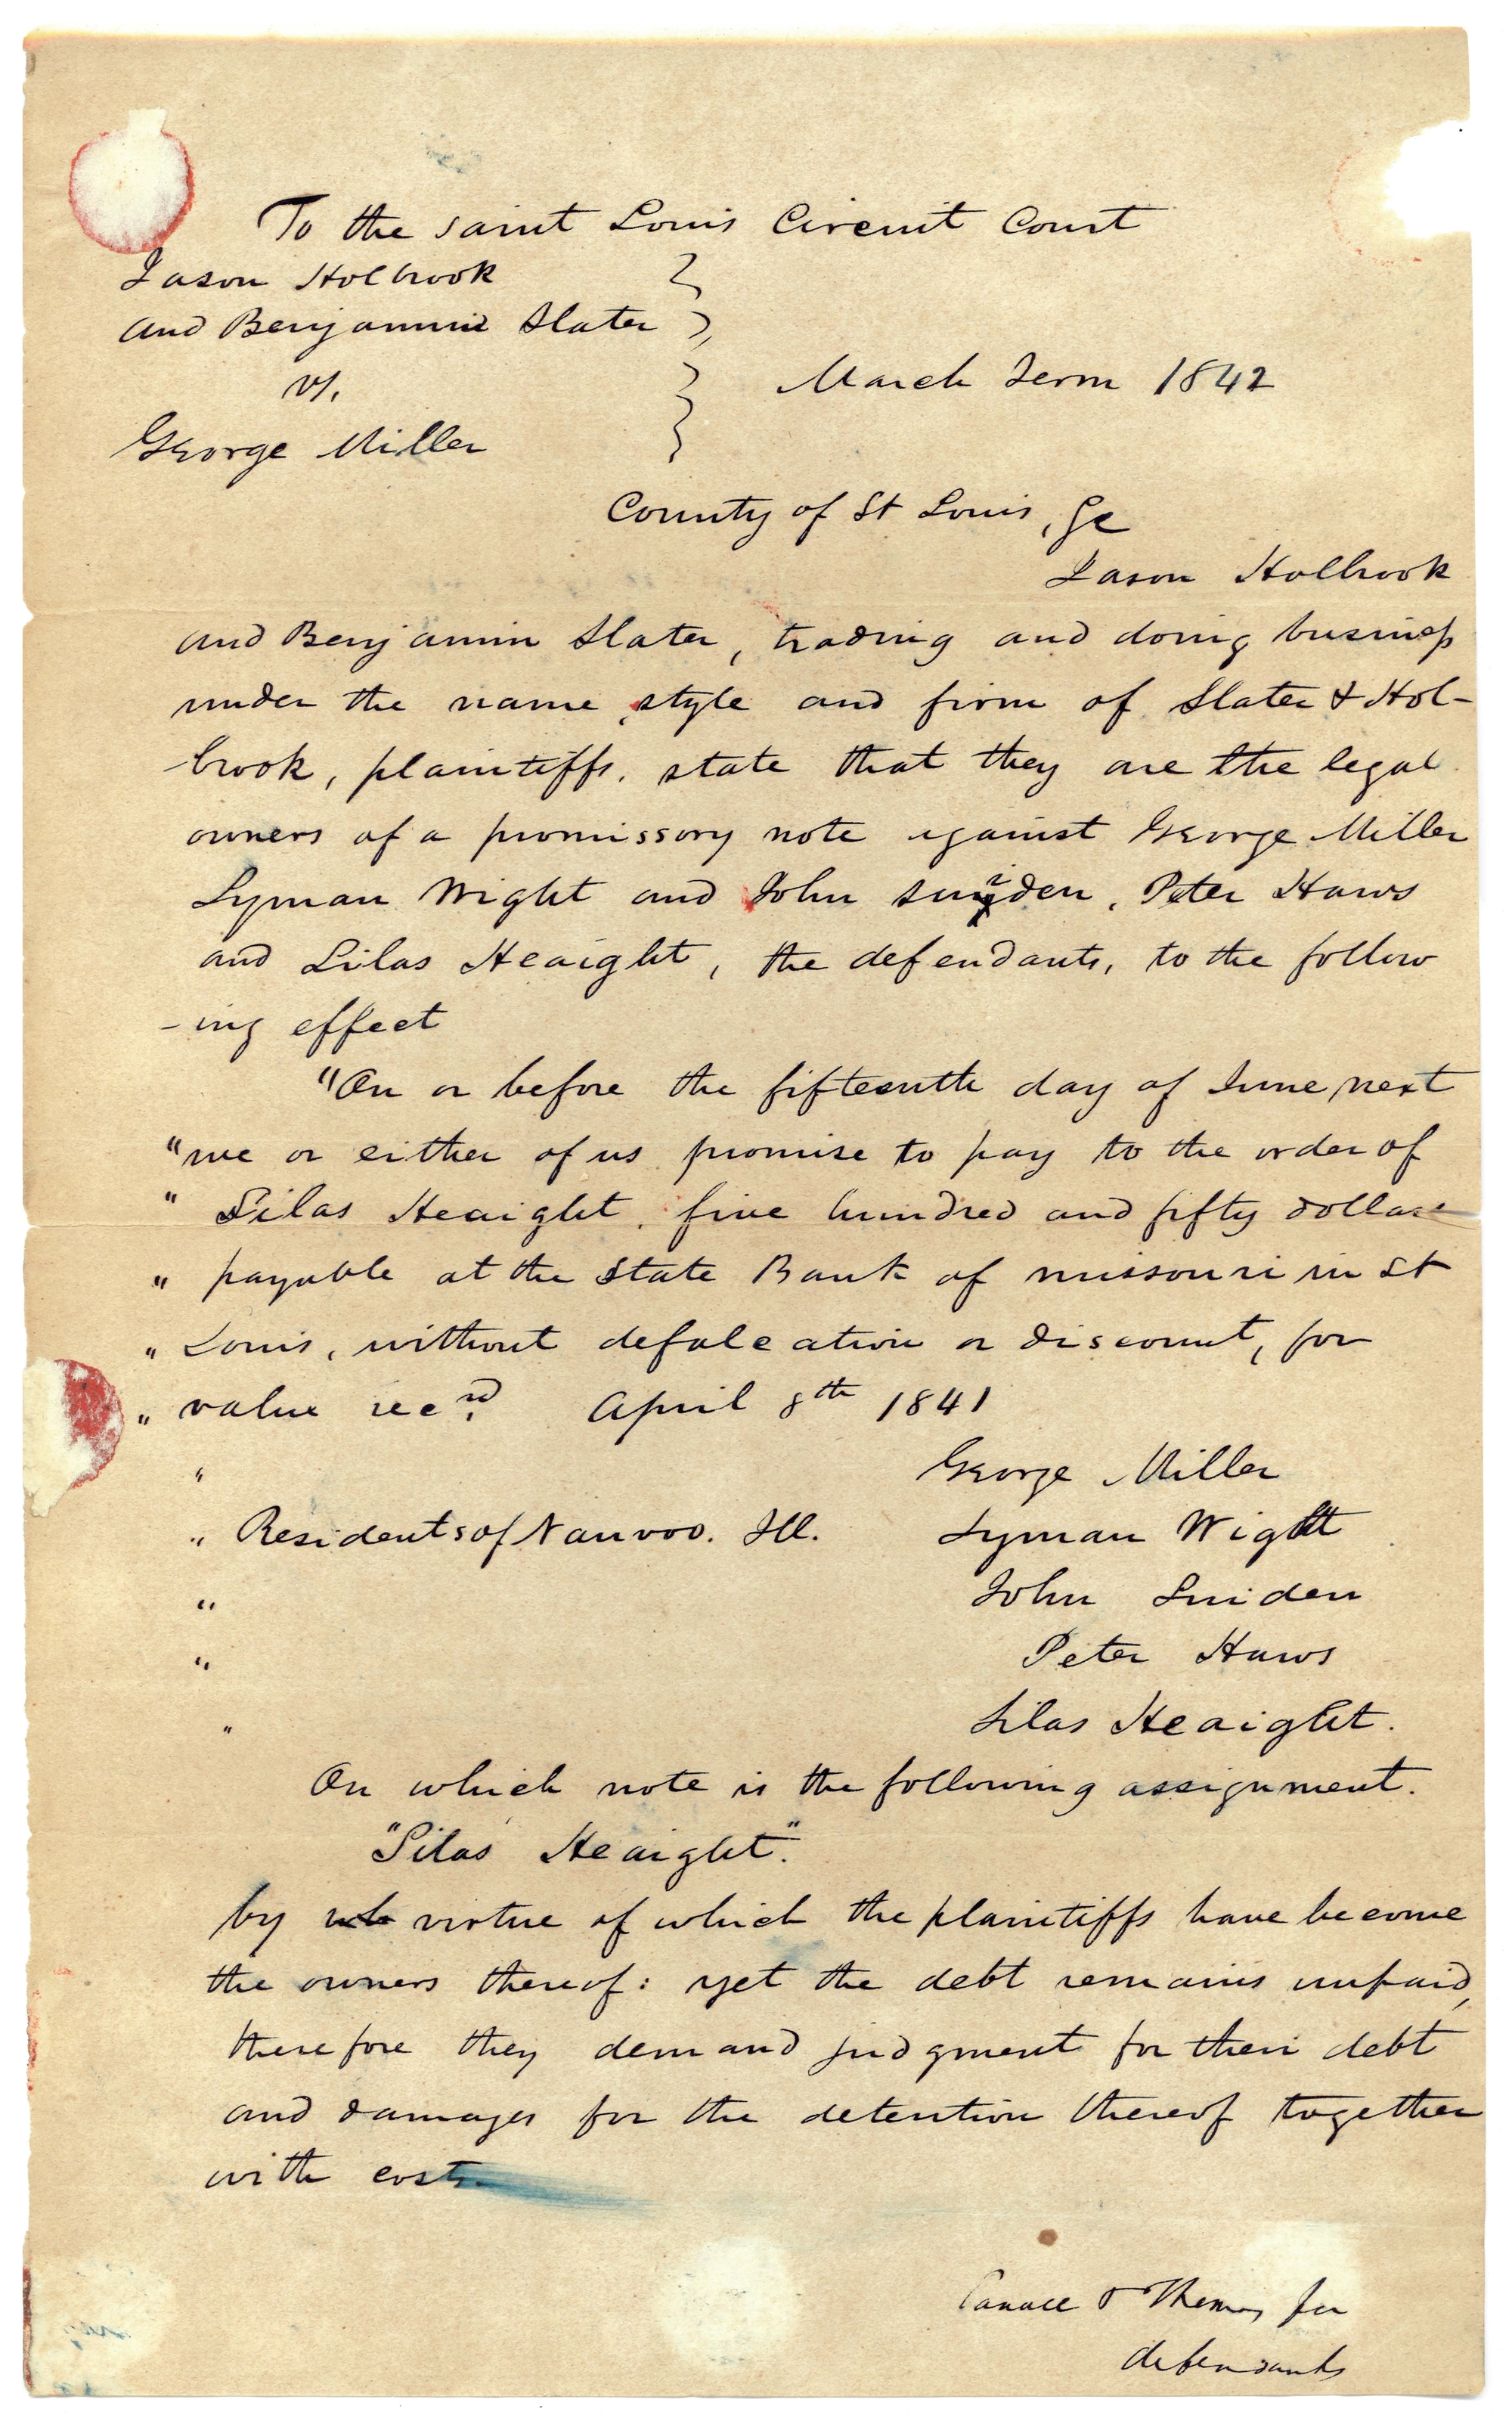 To the saint Louis Circuit Court
Jason Holbrook
and Benjamin Slater
vs.
March Term 1842
George Miller
County of St Louis, Sc
Jason Holbrook
and Benjamin Slater, trading and doing business
under the name, style and firm of Slater & Hol-
-brook, plaintiffs, state that they are the legal
owners of a promissory note against George Miller
Lyman Wight and John Sniden, Peter Haws
and Silas Heaight, the defendants, to the follow
-ing effect
"On or before the fifteenth day of June next
"we or either of us promise to pay to the order of
" Silas Heaight, five hundred and fifty dollars
" payable at the State Bank of missouri in St
" Louis, without defalcation or discount, for
" value recd. April 8th 1841
" George Miller
" Residents of Nauvoo. Ill. Lyman Wight
" John Sniden
" Peter Haws
" Silas Heaight.
On which note is the following assignment.
"Silas Heaight".
by virtue of which the plaintiffs have become
the owners thereof: yet the debt remains unpaid,
therefore they demand judgment for their debt
and damages for the detention thereof together
with costs
& Thomas for
defendants